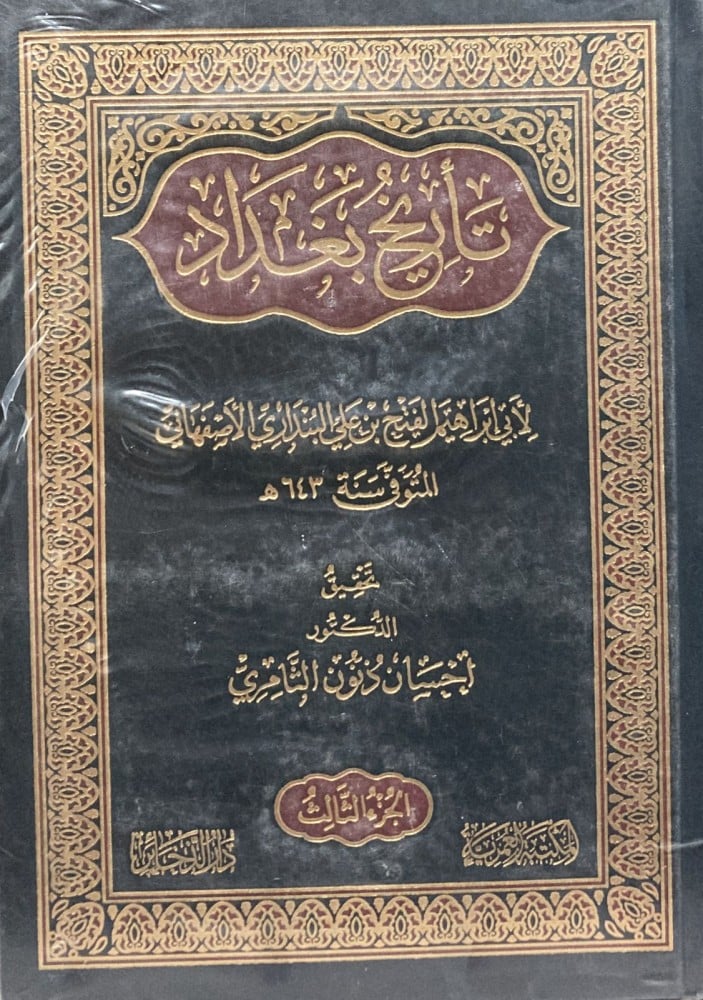 تَأْرِيخُ بَغْدَاد
لِأَبِي إِبْرَاهِيمَ الفَتْحِ بْن عَلِي البُنْدَارِيِّ الأَصْفَهَانِيّ
المُتَوَفَّى سَنَة ٦٤٣ هـ
تَحْقِيقُ
الدُّكْتُور
إحْسَان ذنُون الثَّامِرِيِّ
الجُزْءُ الثَّالِثُ
المكتبة العمرية
دَارُ الذَّخَائِر